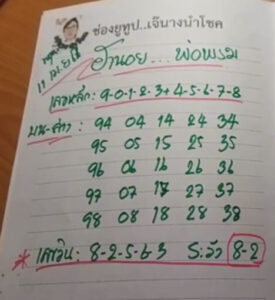 ช่องยูทูป..เจ๊นางนำโชค
11 เม.ย 68
ฮานอย... พ่อพรม
เลขหลัก: 9-0-1-2-3+4-5-6-7-8
บน-ล่าง: 94 04 14 24 34
95 05 15 25 35
96 06 16 26 36
97 07 17 27 37
98 08 18 28 38
* เลขวิน: 8-2-5-6-3 ระวัง 8-2